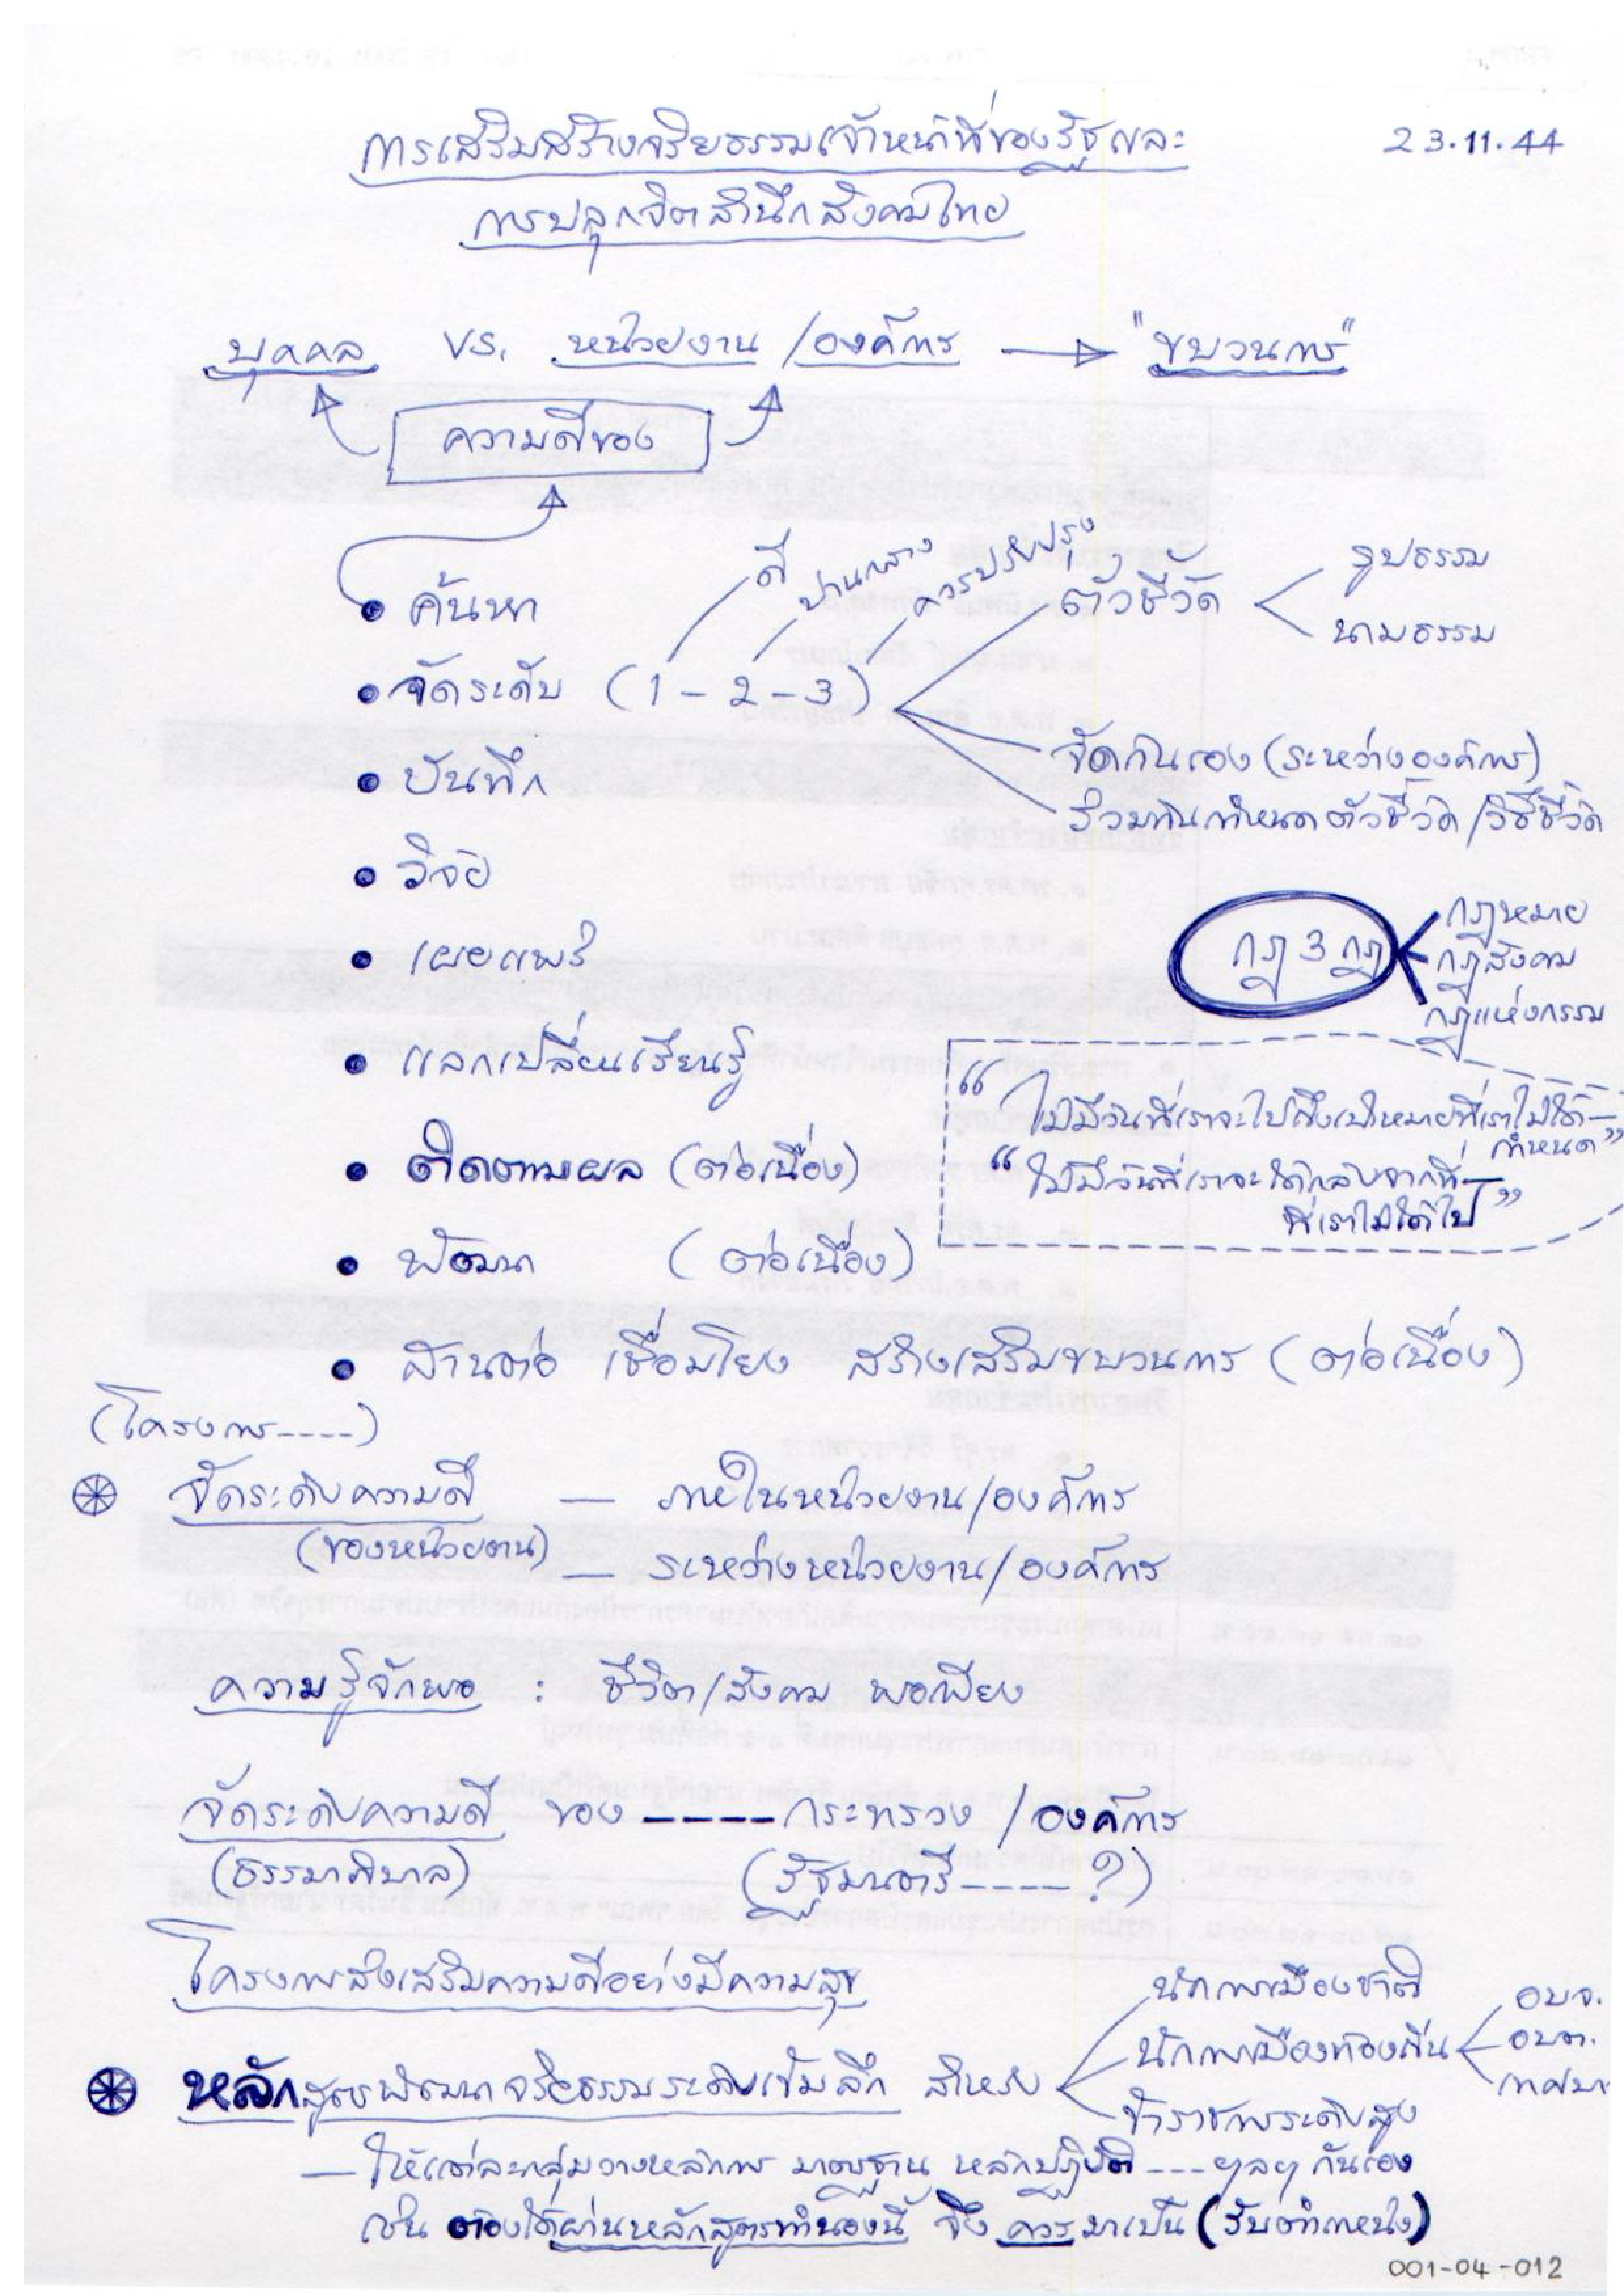 การเสริมสร้างจริยธรรมเจ้าหน้าที่ของรัฐและ
23.11.44
การปลุกจิตสำนึกสังคมไทย
บุคคล vs. หน่วยงาน/องค์การ → "ขบวนการ"
ความดีของ
ดี
ปานกลาง
ควรปรับปรุง
• ค้นหา
ตัวชี้วัด
รูปธรรม
นามธรรม
• จัดระดับ (1-2-3)
จัดกันเอง (ระหว่างองค์การ)
ร่วมกันกำหนดตัวชี้วัด/วิธีชี้วัด
• บันทึก
• วิจัย
• เผยแพร่
กฎ 3 กฎ
กฎหมาย
กฎสังคม
กฎแห่งกรรม
• แลกเปลี่ยนเรียนรู้
“ไม่มีวันที่เราจะไปถึงเป้าหมายที่เราไม่ได้—
กำหนด”
• ติดตามผล (ต่อเนื่อง)
“ไม่มีวันที่เราจะได้กลับจากที่—
ที่เราไม่ได้ไป”
• พัฒนา (ต่อเนื่อง)
• สานต่อ เชื่อมโยง สร้างเสริมขบวนการ (ต่อเนื่อง)
(โครงการ----)
จัดระดับความดี — ภายในหน่วยงาน/องค์การ
(ของหน่วยงาน) — ระหว่างหน่วยงาน/องค์การ
ความรู้จักพอ : ชีวิต/สังคม พอเพียง
จัดระดับความดี ของ ----- กระทรวง/องค์การ
(ธรรมาภิบาล) (รัฐมนตรี----- ?)
โครงการส่งเสริมความดีอย่างมีความสุข
หลักสูตรพัฒนาจริยธรรมระดับเข้มลึก สำหรับ
นักการเมืองชาติ
นักการเมืองท้องถิ่น
อบจ.
อบต.
เทศบาล
ข้าราชการระดับสูง
— ให้แต่ละกลุ่มวางหลักการ มาตรฐาน หลักปฏิบัติ --- ฯลฯ กันเอง
เช่น ต้องได้ผ่านหลักสูตรทำนองนี้ จึง ควรมาเป็น (รับตำแหน่ง)
001-04-012